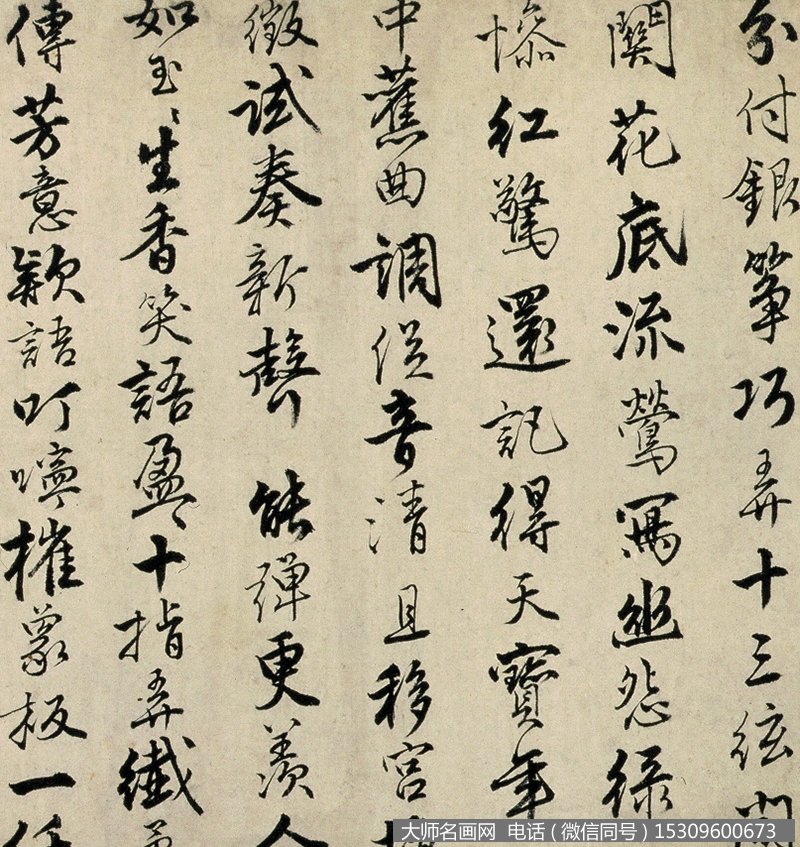 分付銀箏巧弄十三絃間
關花底流鶯寫幽怨綠
慘紅驚還記得天寶年
中舊曲調促音清且移宮
徵試奏新聲能彈更羨人
如玉〻生香笑語盈〻十指弄纖
傳芳意欵語叮嚀摧象板一任
大师名画网 电话（微信同号）15309600673